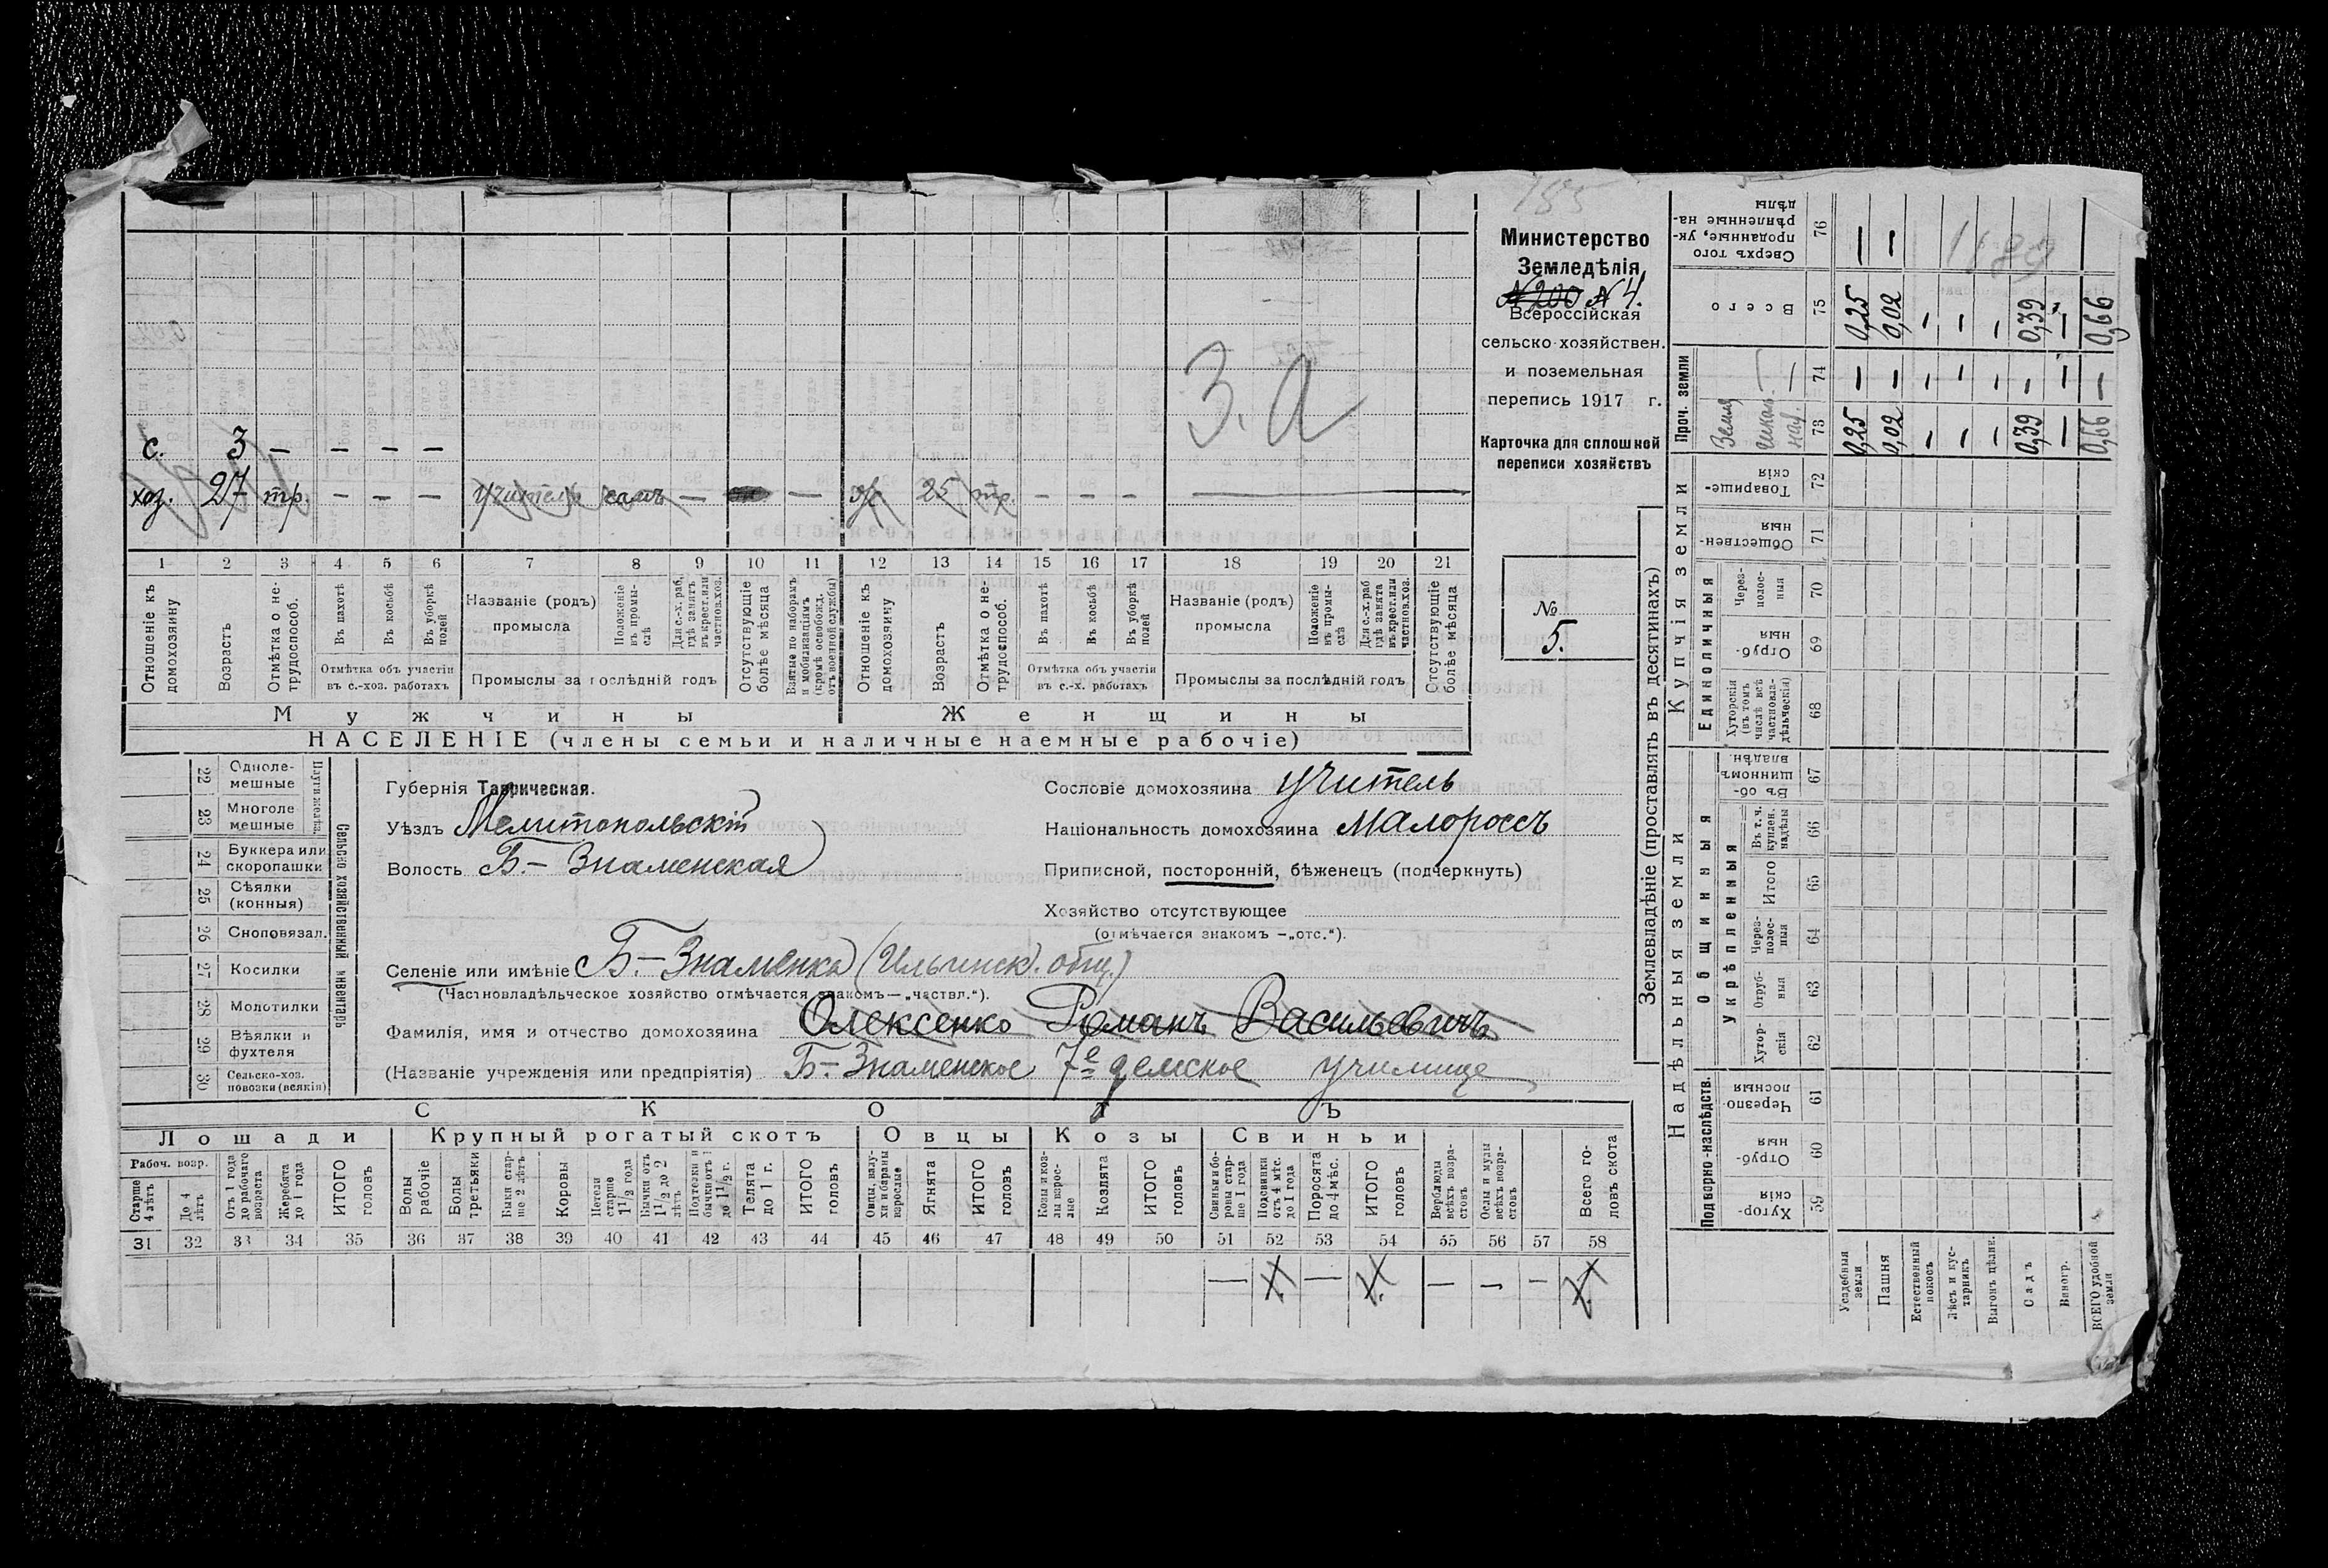 Министерство
Земледѣлія
№ 200 № 4.
Всероссійская
сельско-хозяйствен.
и поземельная
перепись 1917 г.
Карточка для сплошной
переписи хозяйствъ
№
5.
3. а
с. 3 — — — —
хоз. 27 тр. — — — учитель самъ — — 25 тр. — — — —
1 2 3 4 5 6 7 8 9 10 11 12 13 14 15 16 17 18 19 20 21
Отношеніе къ домохозяину
Возрастъ
Отмѣтка о нетрудоспособ.
Въ пахотѣ
Въ косьбѣ
Въ уборкѣ полей
Отмѣтка объ участіи
въ с.-хоз. работахъ
Названіе (родъ)
промысла
Положеніе въ промыслѣ
Для с.-х. раб. гдѣ занятъ въ крест. или частнов. хоз.
Промыслы за послѣдній годъ
Отсутствующіе болѣе мѣсяца
Взятые по наборамъ и мобилизаціямъ (кромѣ освобожд. отъ военной службы)
Отношеніе къ домохозяину
Возрастъ
Отмѣтка о нетрудоспособ.
Въ пахотѣ
Въ косьбѣ
Въ уборкѣ полей
Отмѣтка объ участіи
въ с.-х. работахъ
Названіе (родъ)
промысла
Положеніе въ промыслѣ
Для с.-х. раб. гдѣ занята въ крест. или частнов. хоз.
Промыслы за послѣдній годъ
Отсутствующіе болѣе мѣсяца
Мужчины Женщины
НАСЕЛЕНІЕ (члены семьи и наличные наемные рабочіе)
22 Одноле-
мешные
23 Многоле
мешные
24 Буккера или
скоропашки
25 Сѣялки
(конныя)
26 Сноповязал.
27 Косилки
28 Молотилки
29 Вѣялки и
фухтеля
30 Сельско-хоз.
повозки (всякія)
Сельско хозяйственный инвентарь
Губернія Таврическая.
Уѣздъ Мелитопольскій
Волость Б.-Знаменская
Селеніе или имѣніе Б.-Знаменка (Ильинск. общ.)
(Частновладѣльческое хозяйство отмѣчается знакомъ—„частвл.“).
Фамилія, имя и отчество домохозяина Олексенко Романъ Васильевичъ
(Названіе учрежденія или предпріятія) Б.-Знаменское 7-е земское училище
Сословіе домохозяина учитель
Національность домохозяина малороссъ
Приписной, посторонній, бѣженецъ (подчеркнуть)
Хозяйство отсутствующее
(отмѣчается знакомъ —„отс.“).
СКОТЪ
Лошади Крупный рогатый скотъ Овцы Козы Свиньи
Рабоч. возр.
Старше 4 лѣтъ
До 4 лѣтъ
Отъ 1 года до рабочаго возраста
Жеребята до 1 года
ИТОГО головъ
Волы рабочіе
Волы третьяки
Быки старше 2 лѣтъ
Коровы
Нетели старше 1 1/2 года
Бычки отъ 1 1/2 до 2 лѣтъ
Подтелки и бычки отъ 1 до 1 1/2 г.
Телята до 1 г.
ИТОГО головъ
Овцы, валухи и бараны взрослые
Ягнята
ИТОГО головъ
Козы и козлы взрослые
Козлята
ИТОГО головъ
Свиньи и боровы старше 1 года
Подсвинки отъ 4 мѣс. до 1 года
Поросята до 4 мѣс.
ИТОГО головъ
Верблюды всѣхъ возрастовъ
Ослы и мулы всѣхъ возрастовъ
Всего головъ скота
31 32 33 34 35 36 37 38 39 40 41 42 43 44 45 46 47 48 49 50 51 52 53 54 55 56 57 58
Землевладѣніе (проставлять въ десятинахъ)
Надѣльныя земли
Купчія земли
Проч. земли
Подворно-наслѣдств.
Общинныя
Укрѣпленныя
Единоличныя
Сверхъ того проданные, укрѣпленные надѣлы 76
Всего 75
74
Земля школ. над. 73
Товарищескія 72
Общественныя 71
Черезполосныя 70
Отрубныя 69
Хуторскія (въ томъ числѣ всѣ частновладѣльческія) 68
Въ общинномъ владѣн. 67
Въ т. ч. куплен. надѣлы 66
Итого 65
Черезполосныя 64
Отрубныя 63
Хуторскія 62
Черезполосныя 61
Отрубныя 60
Хуторскія 59
Усадебныя земли 0,25 — 0,25 —
Пашня 0,02 — 0,02 —
Естественный покосъ — — —
Лѣсъ и кустарникъ — — —
Выгонъ цѣлин. — — —
Садъ 0,39 — 0,39
Виногр. — — —
ВСЕГО удобной земли 0,66 — 0,66